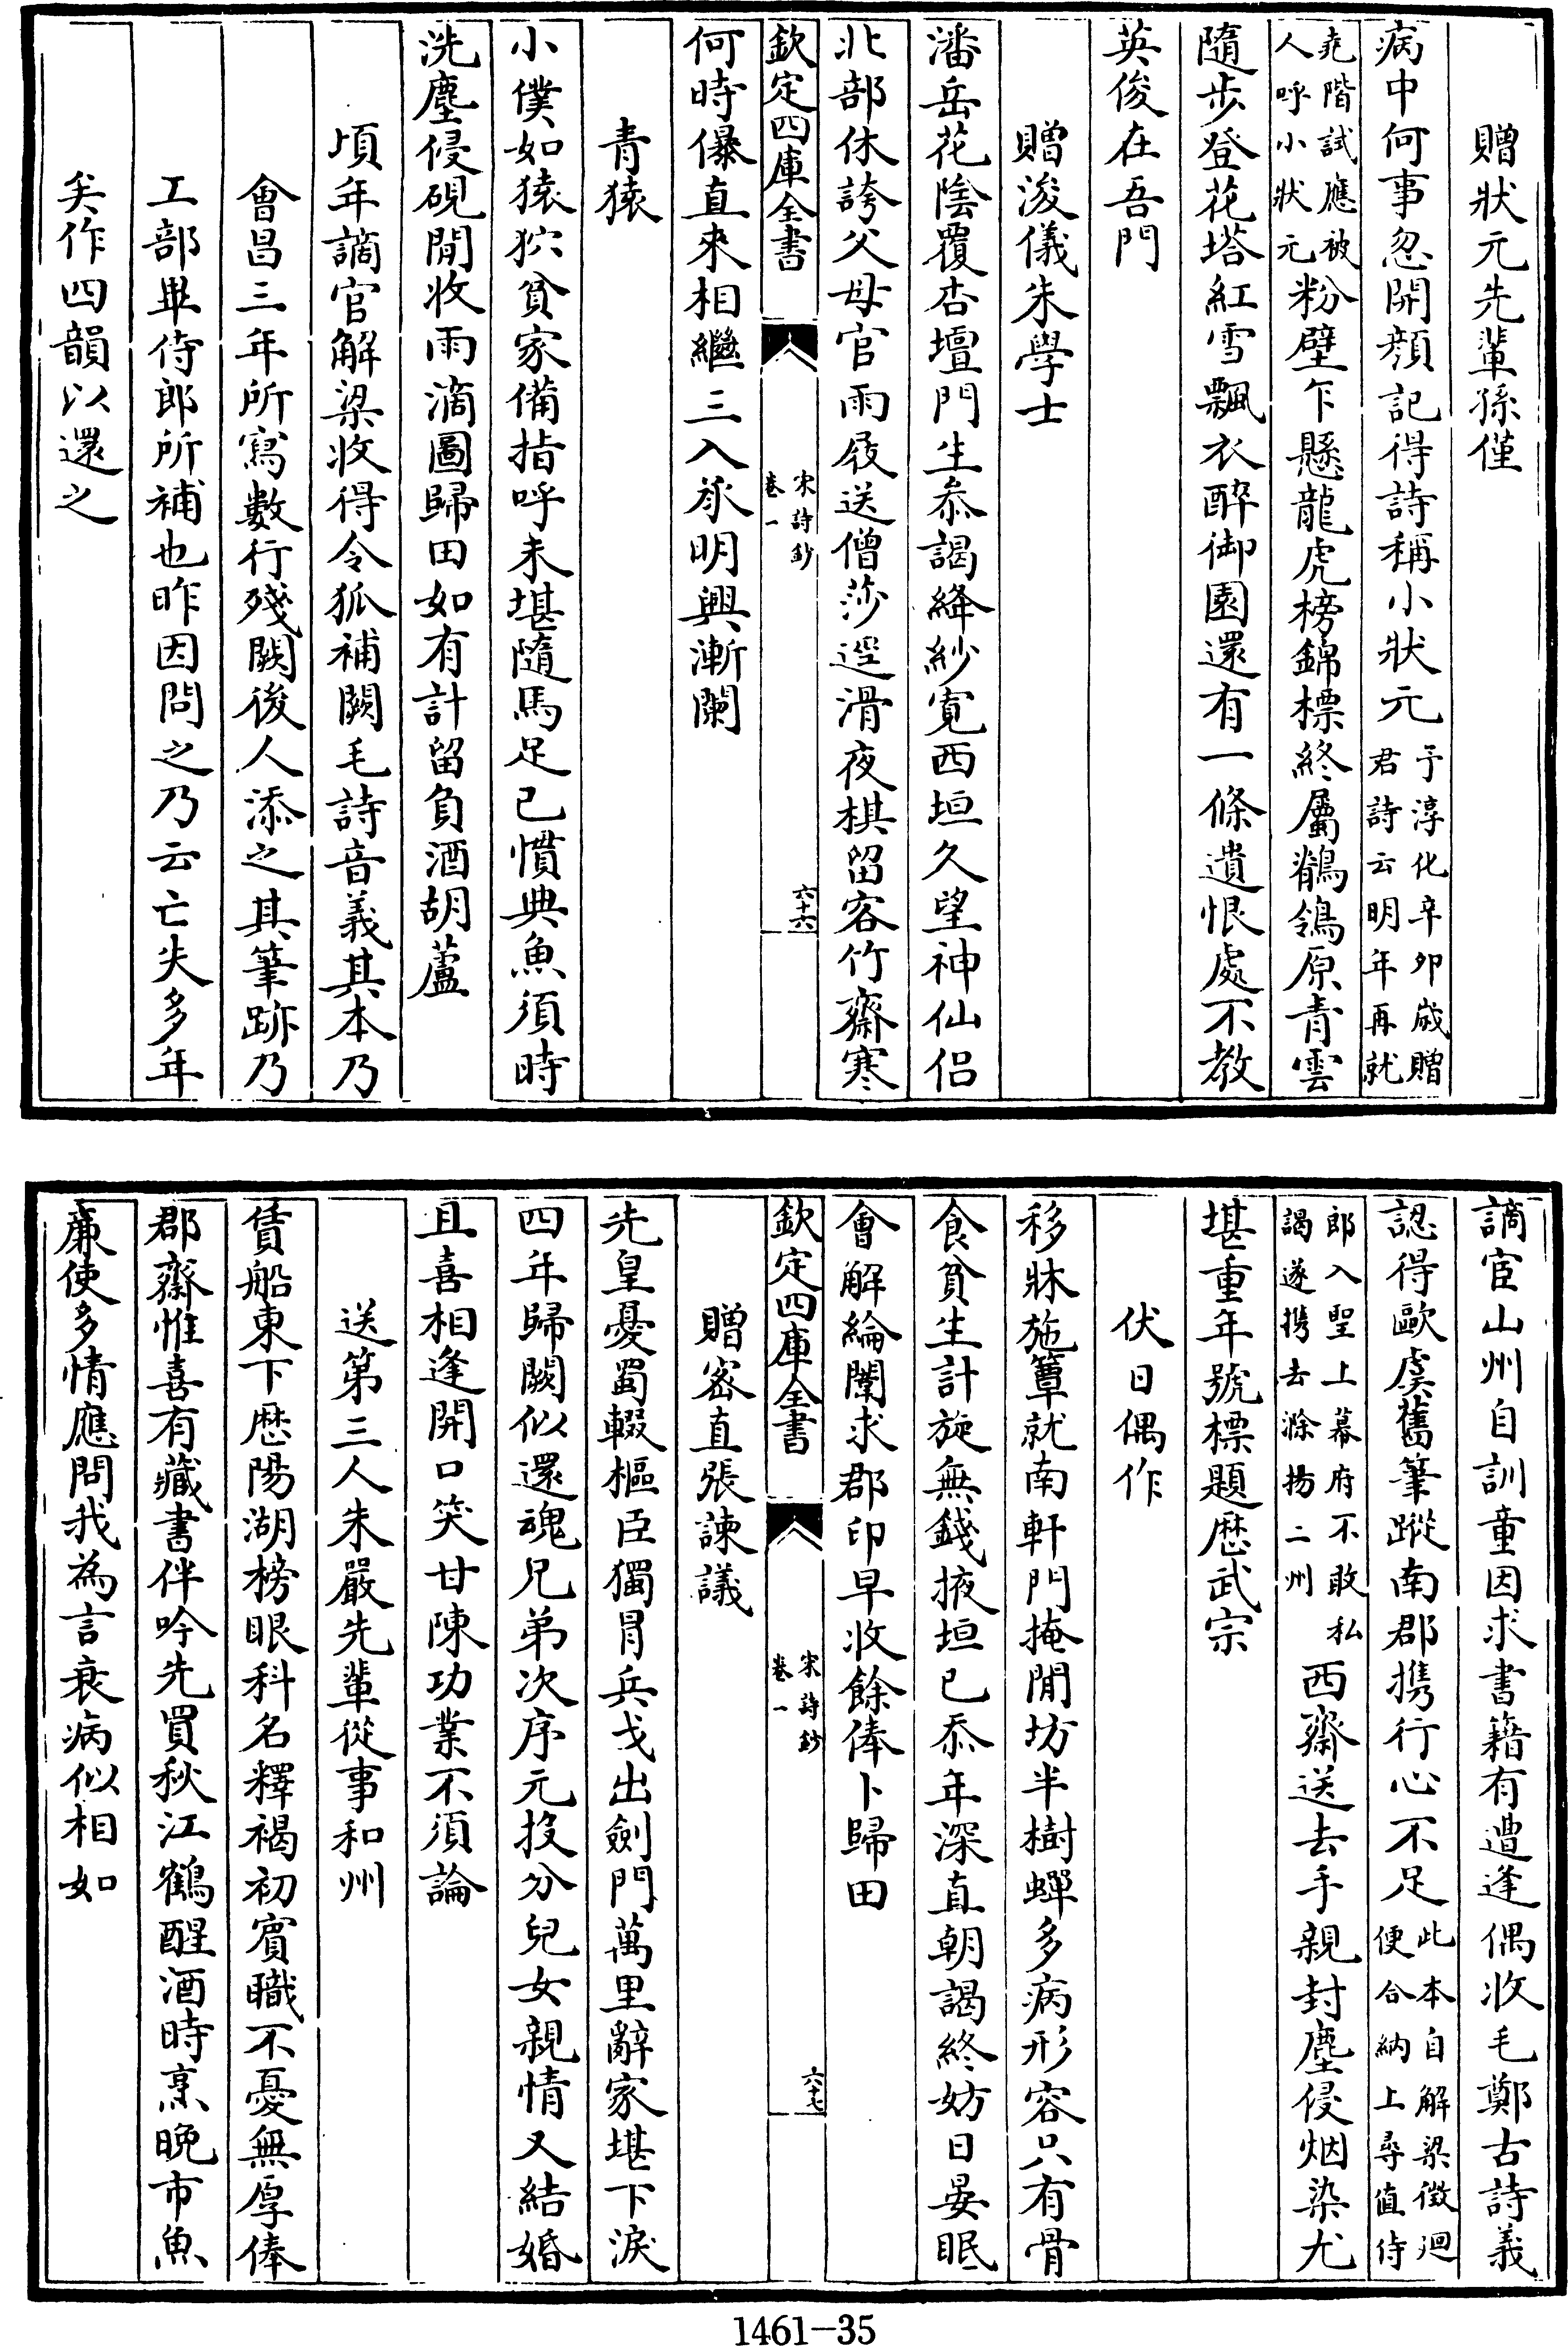 贈狀元先輩孫僅
病中何事忽開顔記得詩稱小狀元予淳化辛卯歲贈君詩云明年再就
堯階試應被人呼小狀元粉壁乍懸龍虎榜錦標終屬鶺鴒原青雲
隨步登花塔紅雪飄衣醉御園還有一條遺恨處不教
英俊在吾門
贈浚儀朱學士
潘岳花陰覆杏壇門生叅謁絳紗寛西垣久望神仙侣
北部休誇父母官雨屐送僧莎逕滑夜棋留客竹齋寒
欽定四庫全書
宋詩鈔
卷一
六十六
何時儤直來相繼三入承明興漸闌
青猿
小僕如猿狖貧家備指呼未堪隨馬足已慣典魚須時
洗塵侵硯閒收雨滴圖歸田如有計留負酒胡蘆
頃年謫官解梁收得令狐補闕毛詩音義其本乃
會昌三年所寫數行殘闕後人添之其筆跡乃
工部畢侍郎所補也昨因問之乃云亡失多年
矣作四韻以還之
謫宦山州自訓童因求書籍有遭逢偶收毛鄭古詩義
認得歐虞舊筆蹤南郡携行心不足此本自解梁徵廻便合納上尋值侍
郎入聖上幕府不敢私謁遂携去滁揚二州西齋送去手親封塵侵烟染尤
堪重年號標題歴武宗
伏日偶作
移牀施簟就南軒門掩閒坊半樹蟬多病形容只有骨
食貧生計旋無錢掖垣已忝年深直朝謁終妨日晏眠
會解綸闈求郡印早收餘俸卜歸田
欽定四庫全書
宋詩鈔
卷一
六十七
贈密直張諫議
先皇憂蜀輟樞臣獨冒兵戈出劍門萬里辭家堪下淚
四年歸闕似還魂兄弟次序元投分兒女親情又結婚
且喜相逢開口笑甘陳功業不須論
送第三人朱嚴先輩從事和州
賃船東下歴陽湖榜眼科名釋褐初賓職不憂無厚俸
郡齋惟喜有藏書伴吟先買秋江鶴醒酒時烹晩市魚
廉使多情應問我為言衰病似相如
1461—35